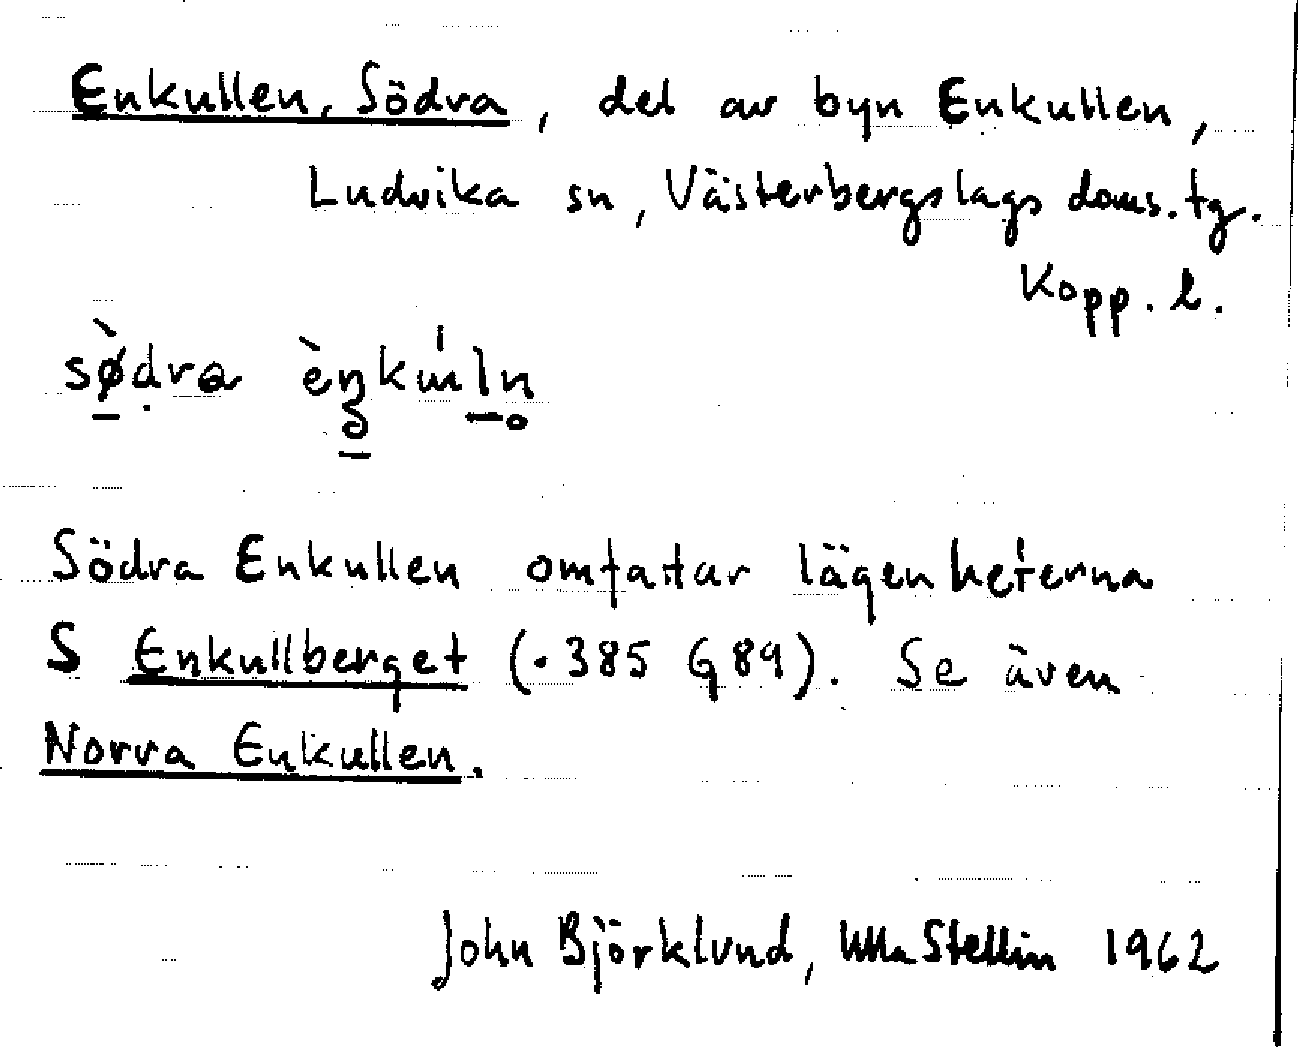 Enkullen, Södra, del av byn Enkullen,
Ludvika sn, Västerbergslags doms. tg.
Kopp. l.
södra
Södra Enkullen omfattar lägenheterna
S Enkullberget (·385 G89). Se även
Norra Enkullen.
John Björklund, Ulla Stellin 1962